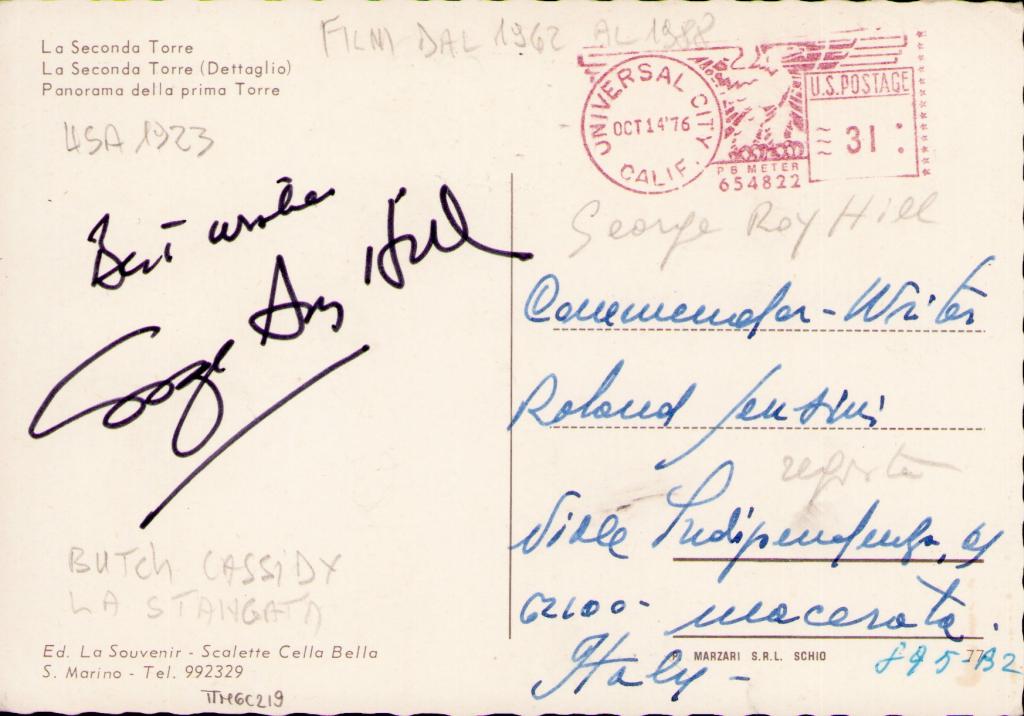 La Seconda Torre
La Seconda Torre (Dettaglio)
Panorama della prima Torre
FILM DAL 1962 AL 1988
USA 1923
UNIVERSAL CITY
OCT 14 '76
CALIF.
P B METER
654822
U.S. POSTAGE
31
Best wishes
George Roy Hill
George Roy Hill
Commendator - Writer
Roland
regista
Viale Indipendenza,
62100 - macerata.
Italy -
BUTCH CASSIDY
LA STANGATA
Ed. La Souvenir - Scalette Cella Bella
S. Marino - Tel. 992329
MARZARI S.R.L. SCHIO